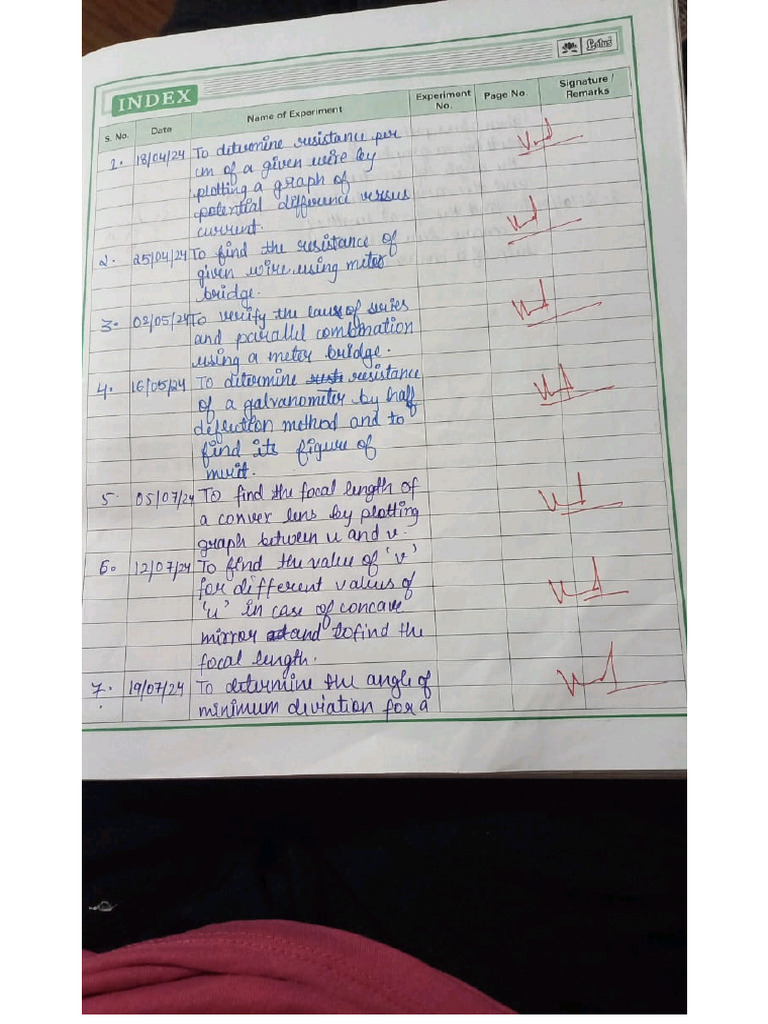 Lotus
INDEX
S. No.
Date
Name of Experiment
Experiment No.
Page No.
Signature / Remarks
1. 18/04/24 To determine resistance per
cm of a given wire by
plotting a graph of
potential difference versus
current.
2. 25/04/24 To find the resistance of
given wire using meter
bridge.
3. 02/05/24 To verify the laws of series
and parallel combination
using a meter bridge.
4. 16/05/24 To determine resistance
of a galvanometer by half
deflection method and to
find its figure of
merit.
5. 05/07/24 To find the focal length of
a conver lens by plotting
graph between u and v.
6. 12/07/24 To find the value of 'v'
for different values of
'u' in case of concave
mirror and to find the
focal length.
7. 19/07/24 To determine the angle of
minimum deviation for a